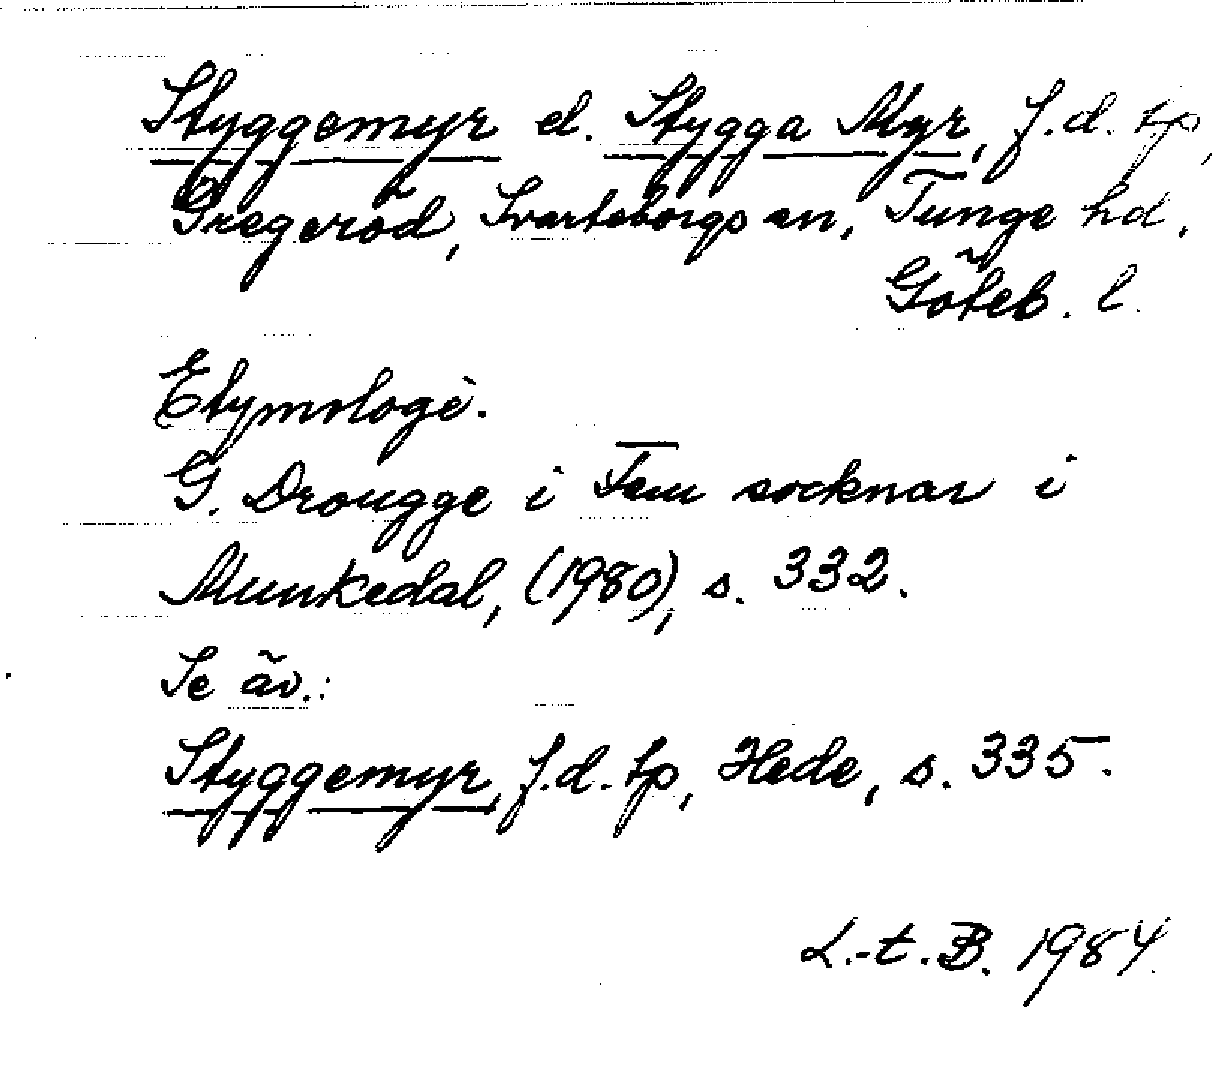 Styggemyr el. Stygga Myr, f.d. tp,
Gregeröd, Svarteborgs sn, Tunge hd,
Göteb. l.
Etymologi.
G. Drougge i Fem socknar i
Munkedal, (1980), s. 332.
Se äv.:
Styggemyr, f.d. tp, Hede, s. 335.
L.-t. B. 1984